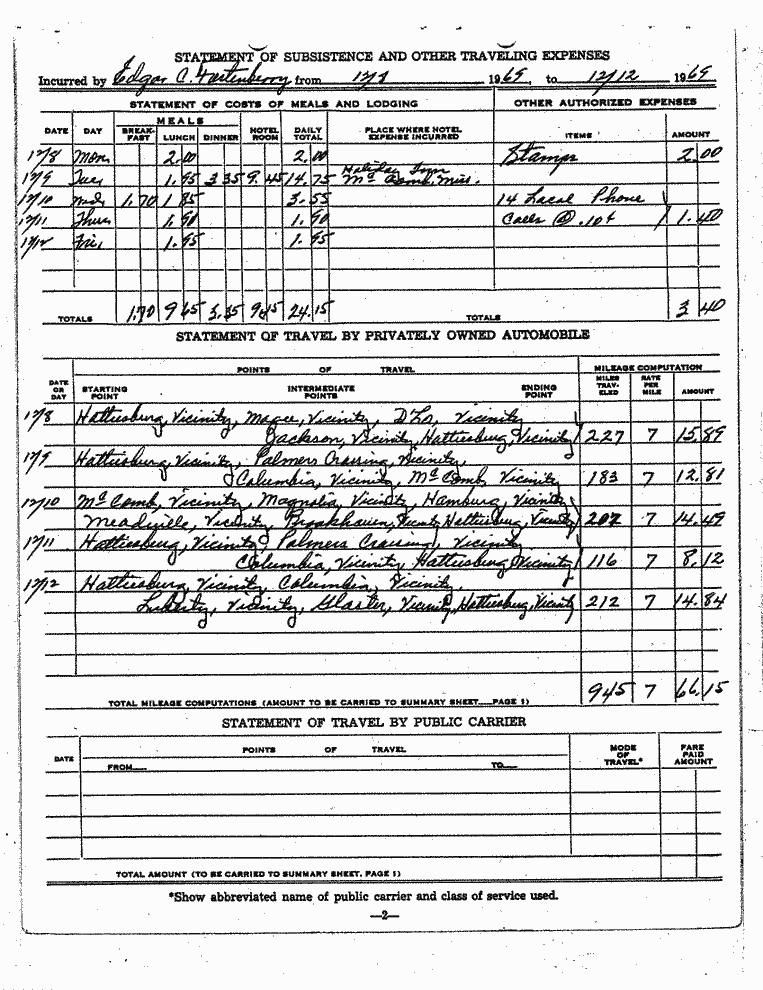 STATEMENT OF SUBSISTENCE AND OTHER TRAVELING EXPENSES
Incurred by Edgar C. Fortenberry from 12/8 1969 to 12/12 1969
STATEMENT OF COSTS OF MEALS AND LODGING OTHER AUTHORIZED EXPENSES
DATE DAY MEALS BREAK-FAST LUNCH DINNER HOTEL ROOM DAILY TOTAL PLACE WHERE HOTEL EXPENSE INCURRED ITEMS AMOUNT
12/8 Mon 2.00 2.00 Stamps 2.00
12/9 Tue 1.95 3.35 9.45 14.75 Holiday Inn Mc Comb, Miss.
12/10 Wed 1.70 1.85 3.55 14 Local Phone
12/11 Thurs 1.90 1.90 Calls @ .10¢ 1.40
12/12 Fri, 1.95 1.95
TOTALS 1.70 9.65 3.35 9.45 24.15 TOTALS 3.40
STATEMENT OF TRAVEL BY PRIVATELY OWNED AUTOMOBILE
POINTS OF TRAVEL MILEAGE COMPUTATION
DATE OR DAY STARTING POINT INTERMEDIATE POINTS ENDING POINT MILES TRAV-ELED RATE PER MILE AMOUNT
12/8 Hattiesburg, Vicinity, Magee, Vicinity, D'Lo, Vicinity
Jackson, Vicinity, Hattiesburg, Vicinity 227 7 15.89
12/9 Hattiesburg, Vicinity, Palmers Crossing, Vicinity,
Columbia, Vicinity, Mc Comb, Vicinity 183 7 12.81
12/10 Mc Comb, Vicinity, Magnolia, Vicinity, Hamburg, Vicinity
Meadville, Vicinity, Brookhaven, Vicinity, Hattiesburg, Vicinity 207 7 14.49
12/11 Hattiesburg, Vicinity, Palmers Crossing, Vicinity
Columbia, Vicinity, Hattiesburg, Vicinity 116 7 8.12
12/12 Hattiesburg, Vicinity, Columbia, Vicinity,
Liberty, Vicinity, Gloster, Vicinity, Hattiesburg, Vicinity 212 7 14.84
TOTAL MILEAGE COMPUTATIONS (AMOUNT TO BE CARRIED TO SUMMARY SHEET PAGE 1) 945 7 66.15
STATEMENT OF TRAVEL BY PUBLIC CARRIER
DATE POINTS OF TRAVEL MODE OF TRAVEL* FARE PAID AMOUNT
FROM TO
TOTAL AMOUNT (TO BE CARRIED TO SUMMARY SHEET, PAGE 1)
*Show abbreviated name of public carrier and class of service used.
—2—